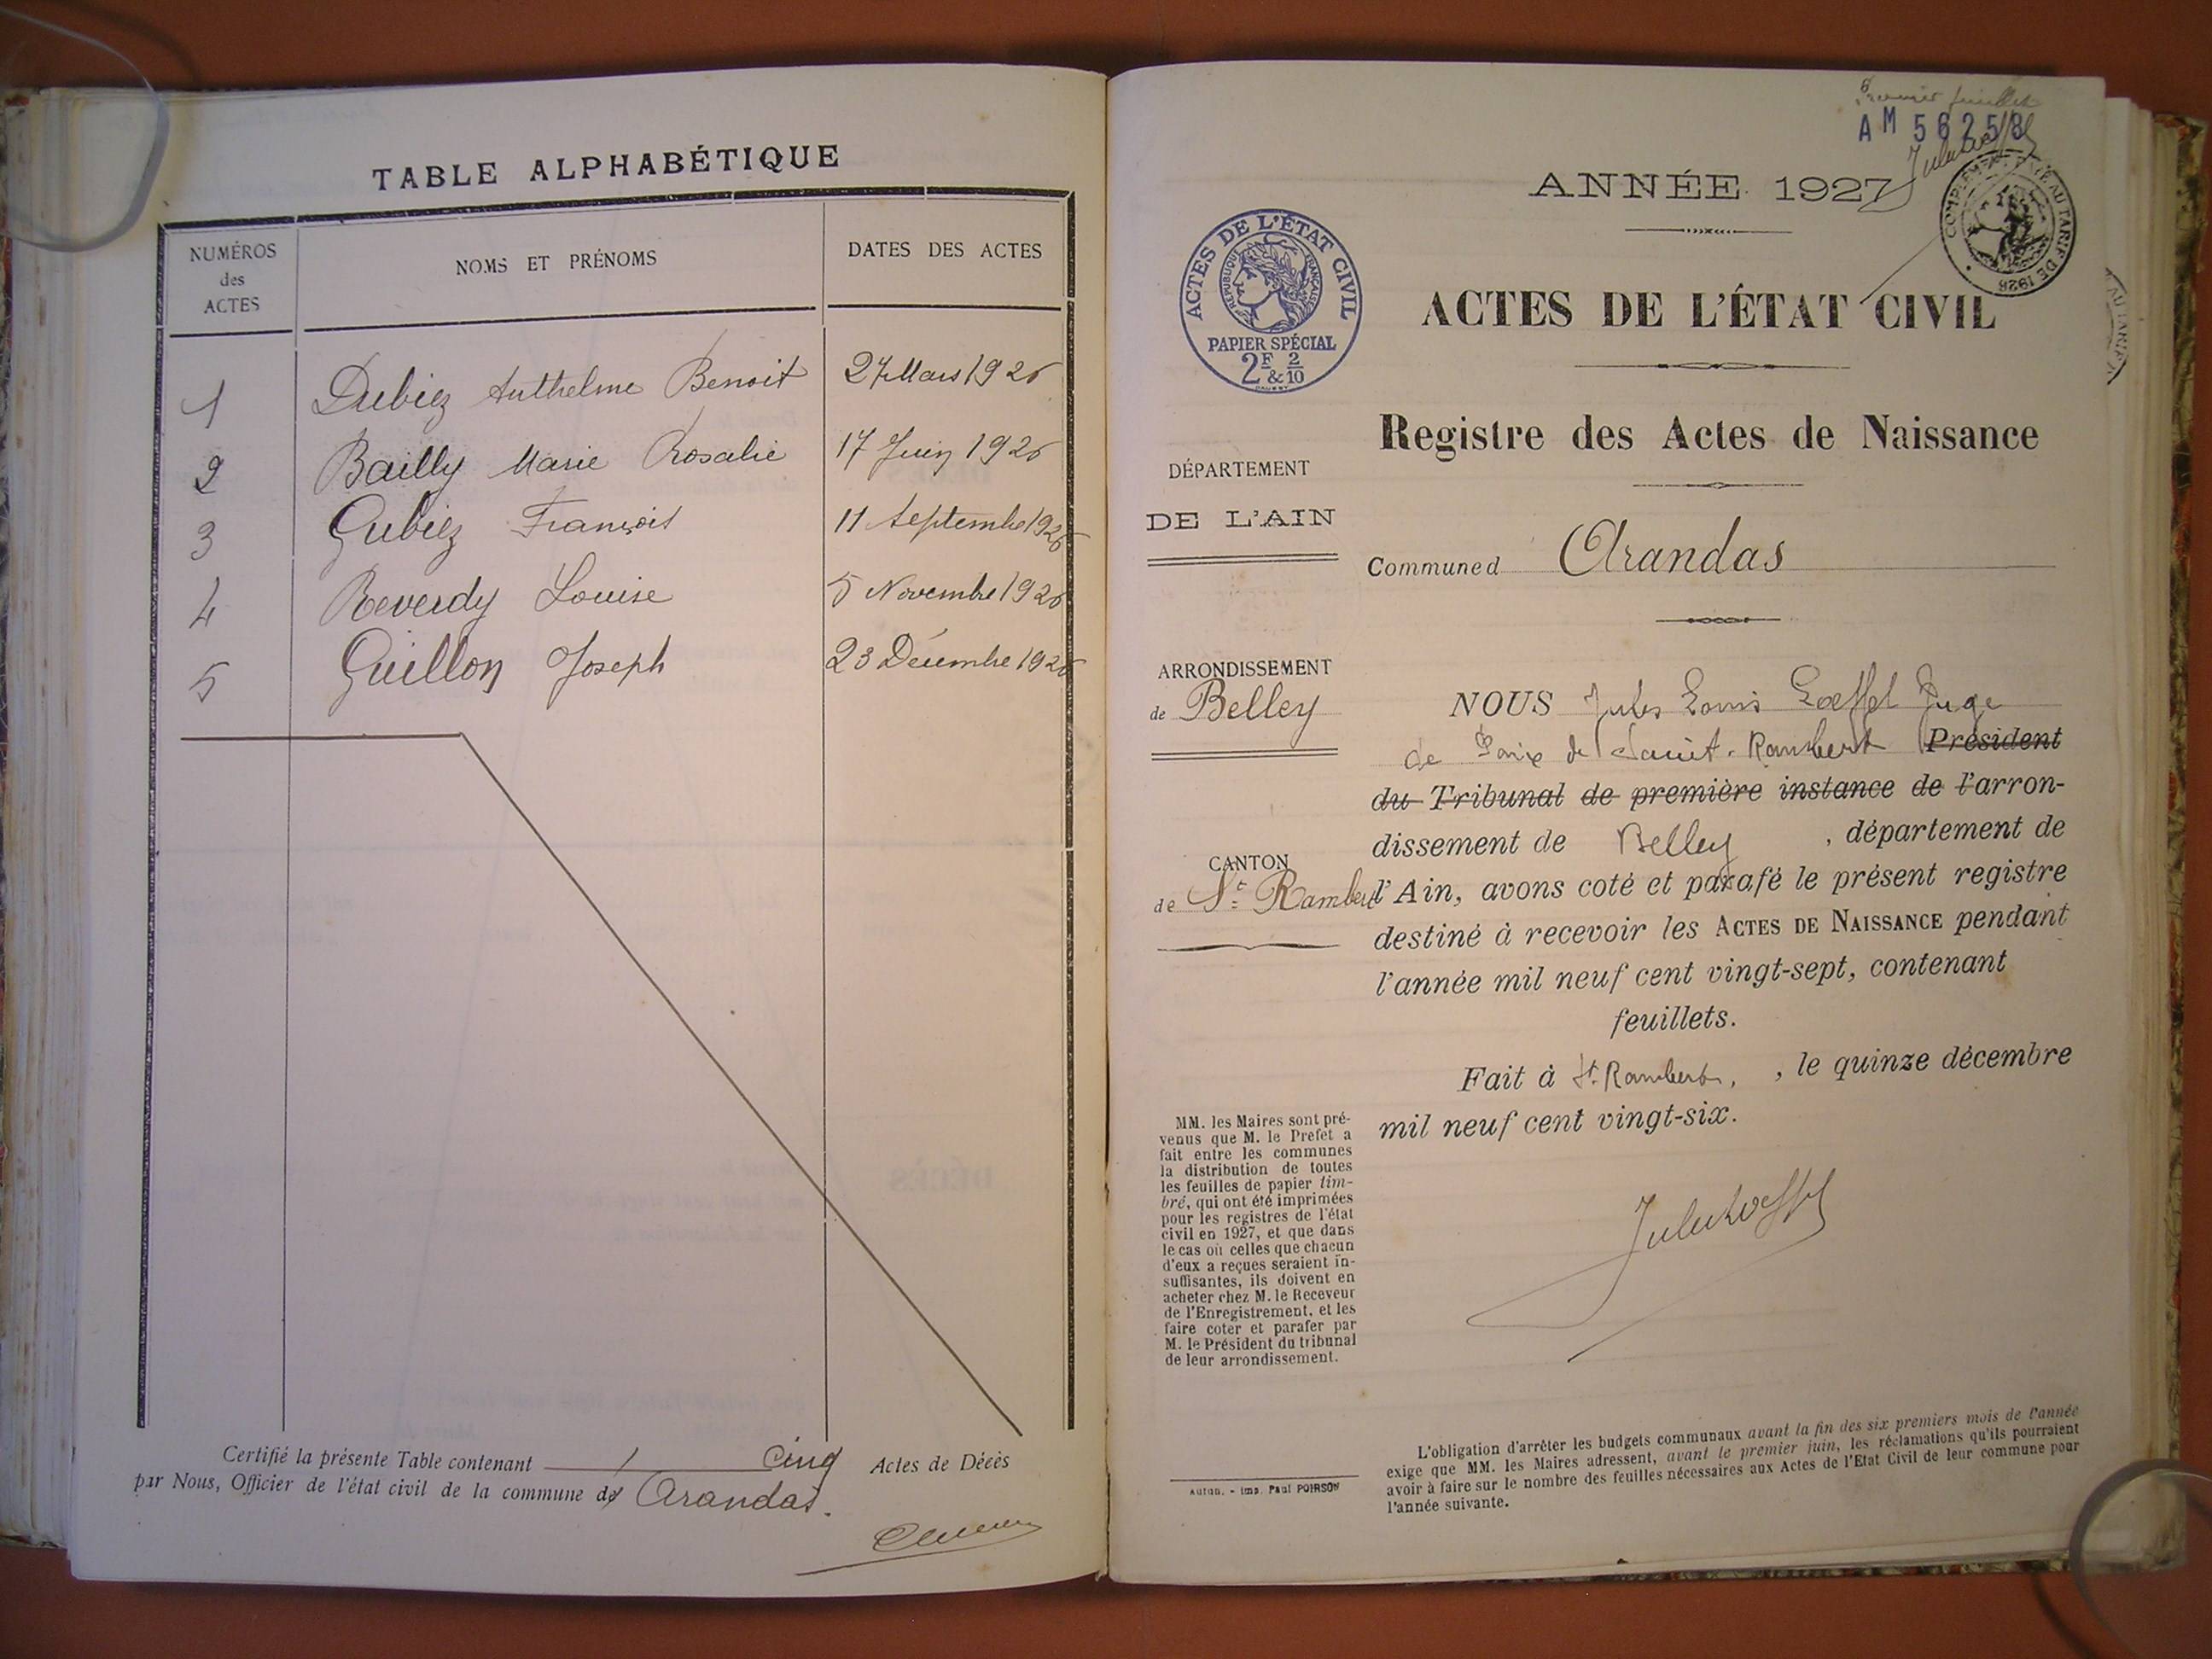 TABLE ALPHABÉTIQUE
NUMÉROS
des
ACTES
NOMS ET PRÉNOMS
DATES DES ACTES
1 Dubiez Anthelme Benoit 27 Mars 1926
2 Bailly Marie Rosalie 17 Juin 1926
3 Gubiez François 11 Septembre 1926
4 Reverdy Louise 5 Novembre 1926
5 Guillon Joseph 23 Décembre 1926
Certifié la présente Table contenant cinq Actes de Décès
par Nous, Officier de l'état civil de la commune d Arandas.
Premier feuillet
AM 56258
ANNÉE 1927
COMPLÉMENT AU TARIF DE 1926
ACTES DE L'ÉTAT CIVIL
RÉPUBLIQUE FRANÇAISE
PAPIER SPÉCIAL
2F & 2/10
ACTES DE L'ÉTAT CIVIL
Registre des Actes de Naissance
DÉPARTEMENT
DE L'AIN
Commune d Arandas
ARRONDISSEMENT
de Belley
CANTON
de St Rambert
NOUS Jules Louis Loeffel Juge
de Paix de Saint-Rambert Président
du Tribunal de première instance de l'arron-
dissement de Belley, département de
l'Ain, avons coté et parafé le présent registre
destiné à recevoir les ACTES DE NAISSANCE pendant
l'année mil neuf cent vingt-sept, contenant
feuillets.
Fait à St. Rambert, , le quinze décembre
mil neuf cent vingt-six.
MM. les Maires sont pré-
venus que M. le Prefet a
fait entre les communes
la distribution de toutes
les feuilles de papier tim-
bré, qui ont été imprimées
pour les registres de l'état
civil en 1927, et que dans
le cas où celles que chacun
d'eux a reçues seraient in-
suffisantes, ils doivent en
acheter chez M. le Receveur
de l'Enregistrement, et les
faire coter et parafer par
M. le Président du tribunal
de leur arrondissement.
Autun. - Imp. Paul POIRSON
L'obligation d'arrêter les budgets communaux avant la fin des six premiers mois de l'année
exige que MM. les Maires adressent, avant le premier juin, les réclamations qu'ils pourraient
avoir à faire sur le nombre des feuilles nécessaires aux Actes de l'Etat Civil de leur commune pour
l'année suivante.